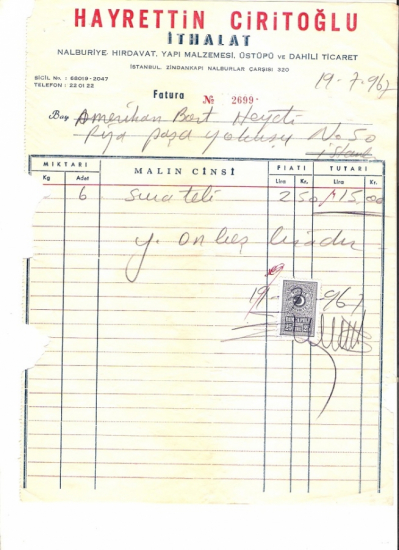 HAYRETTİN CİRİTOĞLU
İTHALAT
NALBURİYE, HIRDAVAT, YAPI MALZEMESİ, ÜSTÜPÜ ve DAHİLİ TİCARET
İSTANBUL, ZİNDANKAPI NALBURLAR ÇARŞISI 320
SİCİL No. : 68019-2047
TELEFON : 22 01 22
19-7-967
Fatura № 2699
Bay Amerikan Bort Heyeti
Rıza paşa yokuşu No 50
MİKTARI MALIN CİNSİ FİATI TUTARI
Kg Adet Lira Kr. Lira Kr.
6 teli 2 50 15,00
y. on beş liradır
19- 967